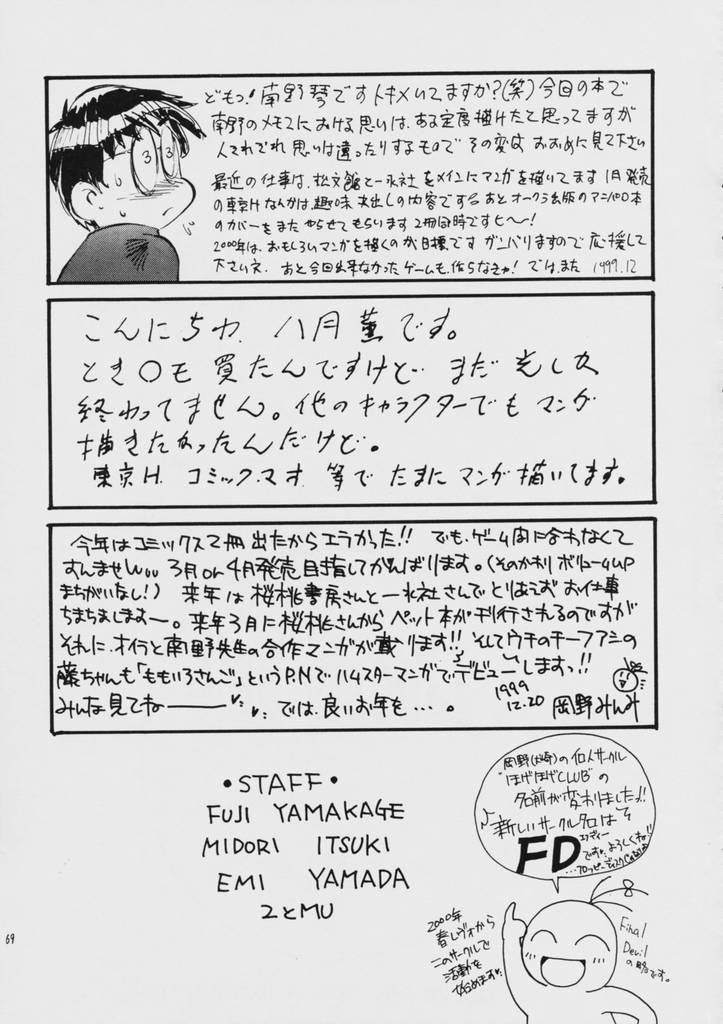 どもっ!南野琴です トキメいてますか?(笑)今回の本で
南野のメモ2における思いは、ある程度描けたと思ってますが
人それぞれ思いは違ったりするもので その変は おおめに見て下さい
最近の仕事は、松文館と一水社をメインにマンガを描いてます 1月発売
の東京Hなんかは、趣味丸出しの内容でするあと オークラ出版のアニパロ本
のカバーをまた やらせてもらいます 2冊同時ですヒ〜!
2000年は、おもしろいマンガを描くのが目標です ガンバりますので応援して
下さいネ. あと今回出来なかったゲームも、作らなきゃ! では、また 1999.12
こんにちわ 八月薫です。
とき〇も 買たんですけど… まだ 光しか
終わってません。他のキャラクターでも マンガ
描きたかったんだけど。
東京H. コミック・マオ 等で たまに マンガ描いてます。
今年はコミックス2冊 出たからエラかった!! でも、ゲーム間に合わなくて
すんませんw 3月or4月発売目指してがんばります。(そのかわり ボリュームup
まちがいなし!) 来年は桜桃書房さんと一水社さんでとりあえず お仕事
ちまちましま〜す。来年3月に桜桃さんから ペット本が刊行されるのですが
それに、オイラと南野先生の合作マンガが載ります!! そしてウチのチーフアシの
藤ちゃんも「ももいろさんご」というP.Nでハムスターマンガでデビューしますっ!!
みんな見てねー では、良いお年を…。
1999
12.20 岡野みんみ
•STAFF•
FUJI YAMAKAGE
MIDORI ITSUKI
EMI YAMADA
2とMU
岡野()の個人サークル
"ほげほげCLUB"の
名前が変わりました!!
♪新しいサークル名は
FD
エフディー
です♡よろしくね!!
…フロッピーディスク
2000年
春レヴォから
このサークルで
活動を
始めます♡
Final
Devil
の略です。
69